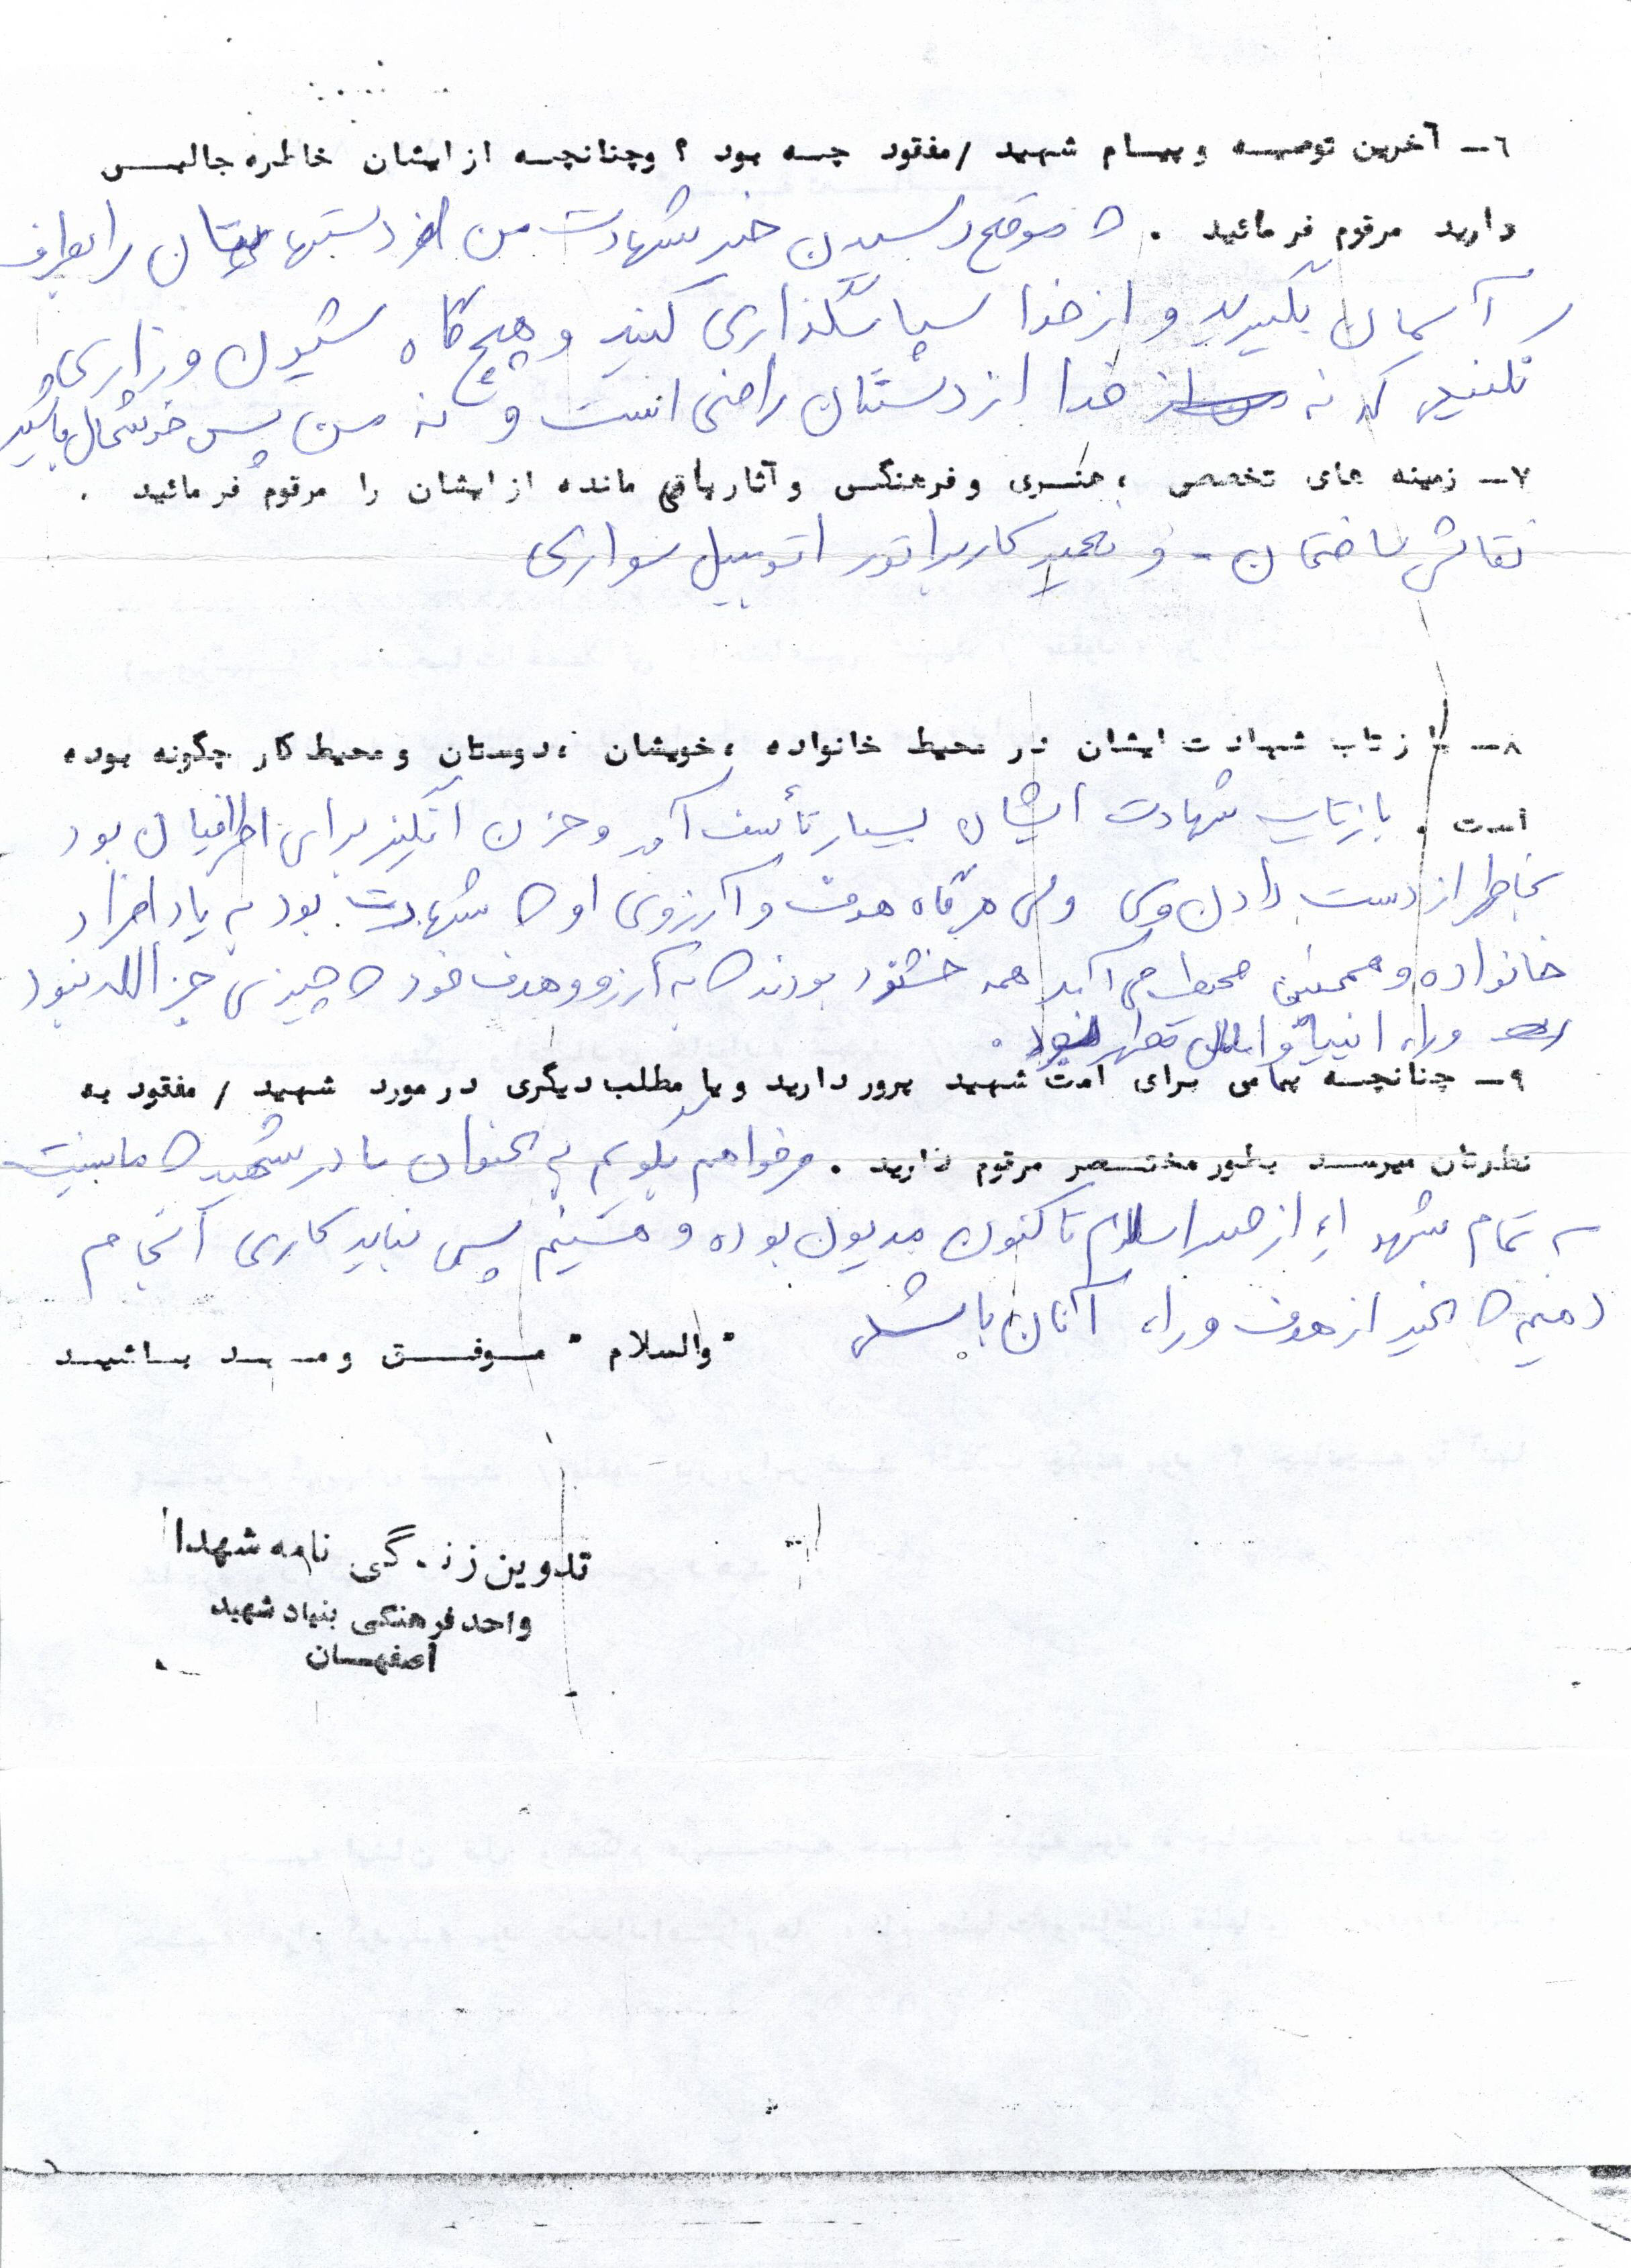 ٦ــ آخرین توصیه و پیام شهید / مفقود چه بود ؟ وچنانچه از ایشان خاطره جالبی
دارید مرقوم فرمائید . که موقع رسیدن خبر شهادت من دستهایتان را بطرف
آسمان بگیرید و از خدا سپاسگذاری کنید و هیچ گاه شیون و زاری
نکنید که نه خدا از دستتان راضی است و نه من پس خوشحال باشید
٧ــ زمینه های تخصصی ، هنری و فرهنگی و آثار باقی مانده از ایشان را مرقوم فرمائید .
نقاش ساختمان - و تعمیر کاربراتور اتومبیل سواری
٨ــ بازتاب شهادت ایشان در محیط خانواده ، خویشان ، دوستان و محیط کار چگونه بوده
است . بازتاب شهادت ایشان بسیار تأسف آور و حزن انگیز برای اطرافیان بود
بخاطر از دست دادن وی ولی هرگاه هدف و آرزوی او که شهادت بود به یاد افراد
خانواده و همچنین محیط می آمد همه خشنود بودند که به آرزو و هدف خود که چیزی جز الله نبود
و راه انبیا و
٩ــ چنانچه پیامی برای امت شهید پرور دارید و یا مطلب دیگری در مورد شهید / مفقود به
نظرتان میرسد بطور مختصر مرقوم دارید . میخواهم بگویم به عنوان مادر شهید که ما نسبت
به تمام شهداء از صدر اسلام تا کنون مدیون بوده و هستیم پس نباید کاری انجام
دهیم که بغیر از هدف و راه آنان باشد
" والسلام " موفق و مؤید باشید
تدوین زندگی نامه شهدا
واحد فرهنگی بنیاد شهید
اصفهان